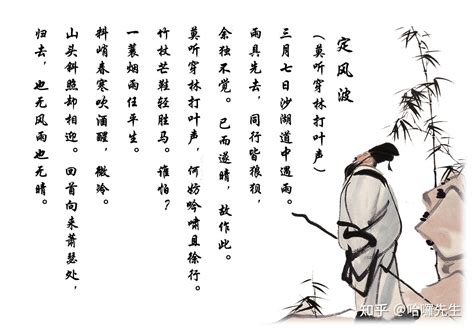 定风波
（莫听穿林打叶声）
三月七日沙湖道中遇雨。
雨具先去，同行皆狼狈，
余独不觉。已而遂晴，故作此。
莫听穿林打叶声，何妨吟啸且徐行。
竹杖芒鞋轻胜马。谁怕？
一蓑烟雨任平生。
料峭春寒吹酒醒，微冷。
山头斜照却相迎。回首向来萧瑟处，
归去，也无风雨也无晴。
知乎 @哈啰先生